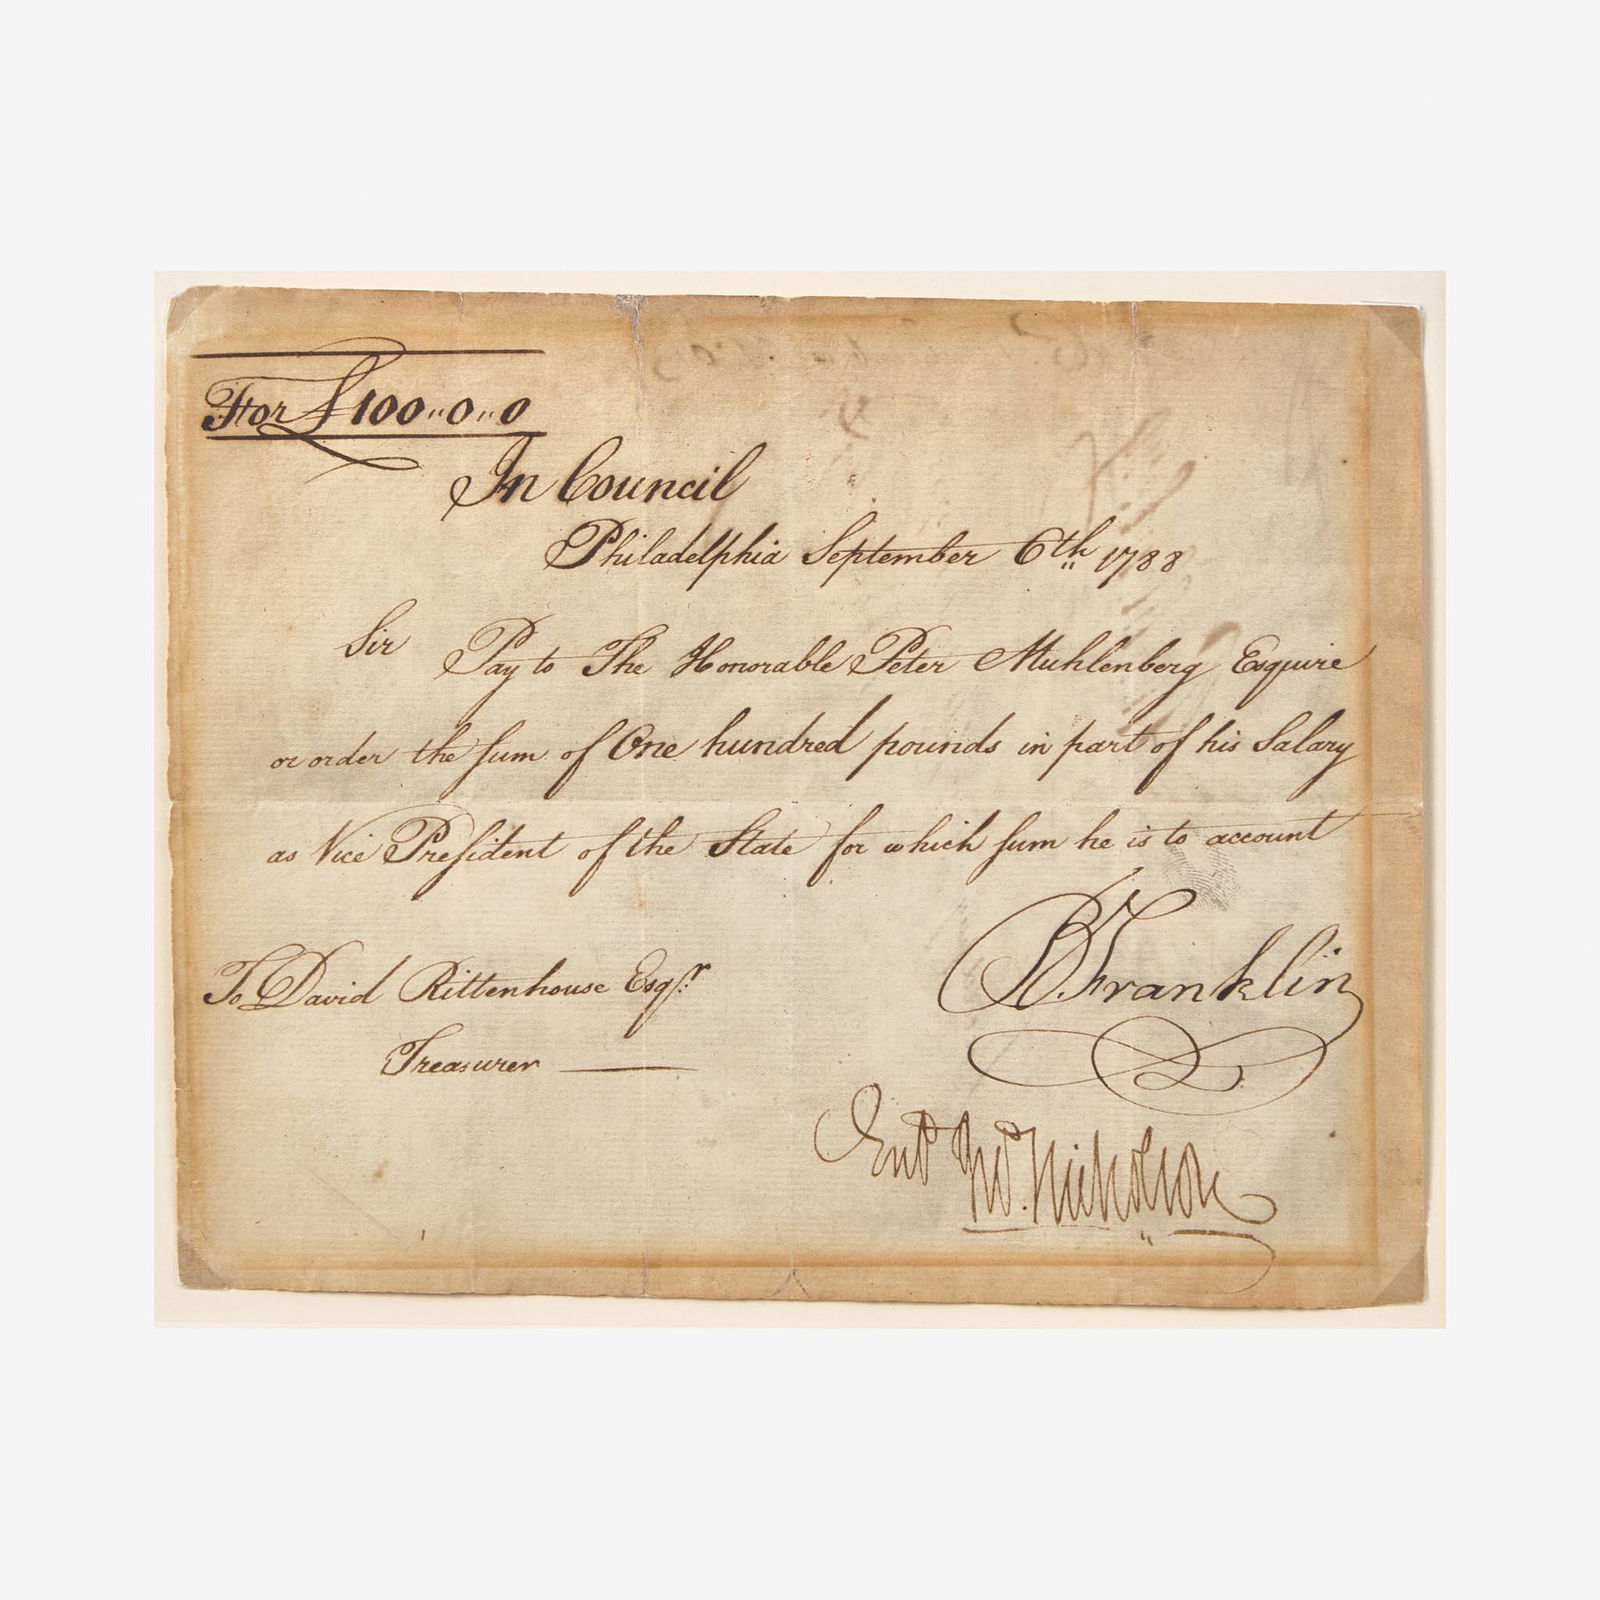 For £100..0..0
In Council
Philadelphia September 6th 1788
Sir Pay to The Honorable Peter Muhlenberg Esquire
or order the sum of One hundred pounds in part of his Salary
as Vice President of the State for which sum he is to account
B. Franklin
To David Rittenhouse Esqr.
Treasurer
Entd Jno. Nicholson